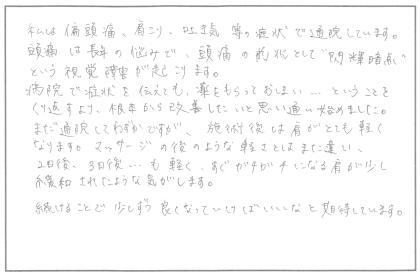 私は偏頭痛、肩こり、吐き気 等の症状で通院しています。
頭痛は長年の悩みで、頭痛の前兆として"閃輝暗点"
という視覚障害が起こります。
病院で症状を伝えても、薬をもらっておしまい…ということを
くり返すより、根本から改善したいと思い通い始めました。
まだ通院してわずかですが、施術後は肩がとても軽く
なります。マッサージの後のような軽さとはまた違い、
2日後、3日後…も軽く、すぐガチガチになる肩が少し
緩和されたような気がします。
続けることで少しずつ良くなっていけばいいなと期待しています。